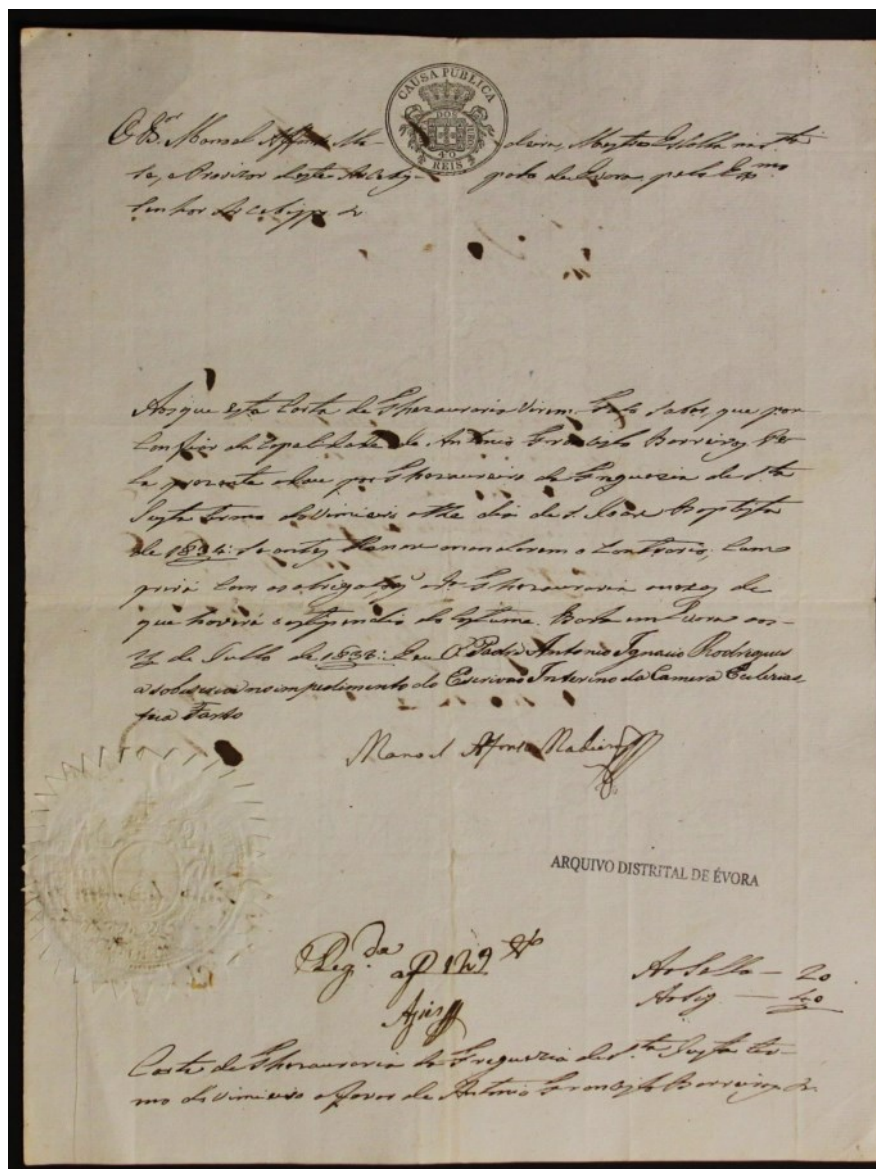 CAUSA PUBLICA
DOS
40
REIS
O D.or Manoel Affonso Ma- deira, Mestre Escolla nesta
Se, e Provizor deste Arcebis- pado de Evora pelo Ex.mo
Senhor Arcebispo &
Aos que esta Carta de Thezouraria virem Faço saber, que por
confiar da capacidade de Antonio Francisco Barreiros Pe-
la prezente o dou por Thezoureiro da Freguezia de S.ta
Justa termo do Vimieiro athe dia de S. João Baptista
de 1834: se antes não mandarem o contrario; cum-
prirá com as obrigaçoens da Thezouraria de
que haverá o estipendio do costume. Dada em Evora aos
de Julho de 1833: E eu O Padre Antonio Ignacio Rodrigues
a sobescrevi no impedimento do Escrivaõ Interino da Camera Eclezias-
tica Farto
Manoel Affonso Madeira
ARQUIVO DISTRITAL DE ÉVORA
Reg.da a f 129
Ao Sello — 20
Assig — 40
Carta de Thezouraria da Freguezia de S.ta Justa ter-
mo do Vimieiro a favor de Antonio Francisco Barreiros &